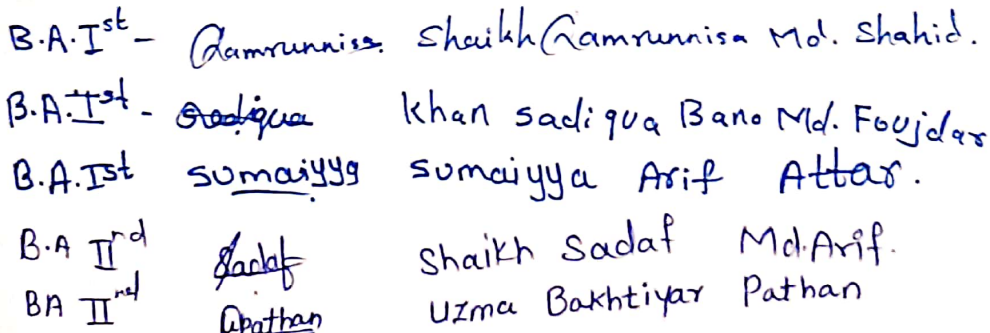 B.A.Ist - Qamrunnisa. Shaikh Qamrunnisa Md. Shahid.
B.A.Ist - Sadiqua Khan Sadiqua Bano Md. Foujdar
B.A.Ist Sumaiyya Sumaiyya Arif Attar.
B.A IInd Sadaf Shaikh Sadaf Md.Arif.
BA IInd Upathan Uzma Bakhtiyar Pathan